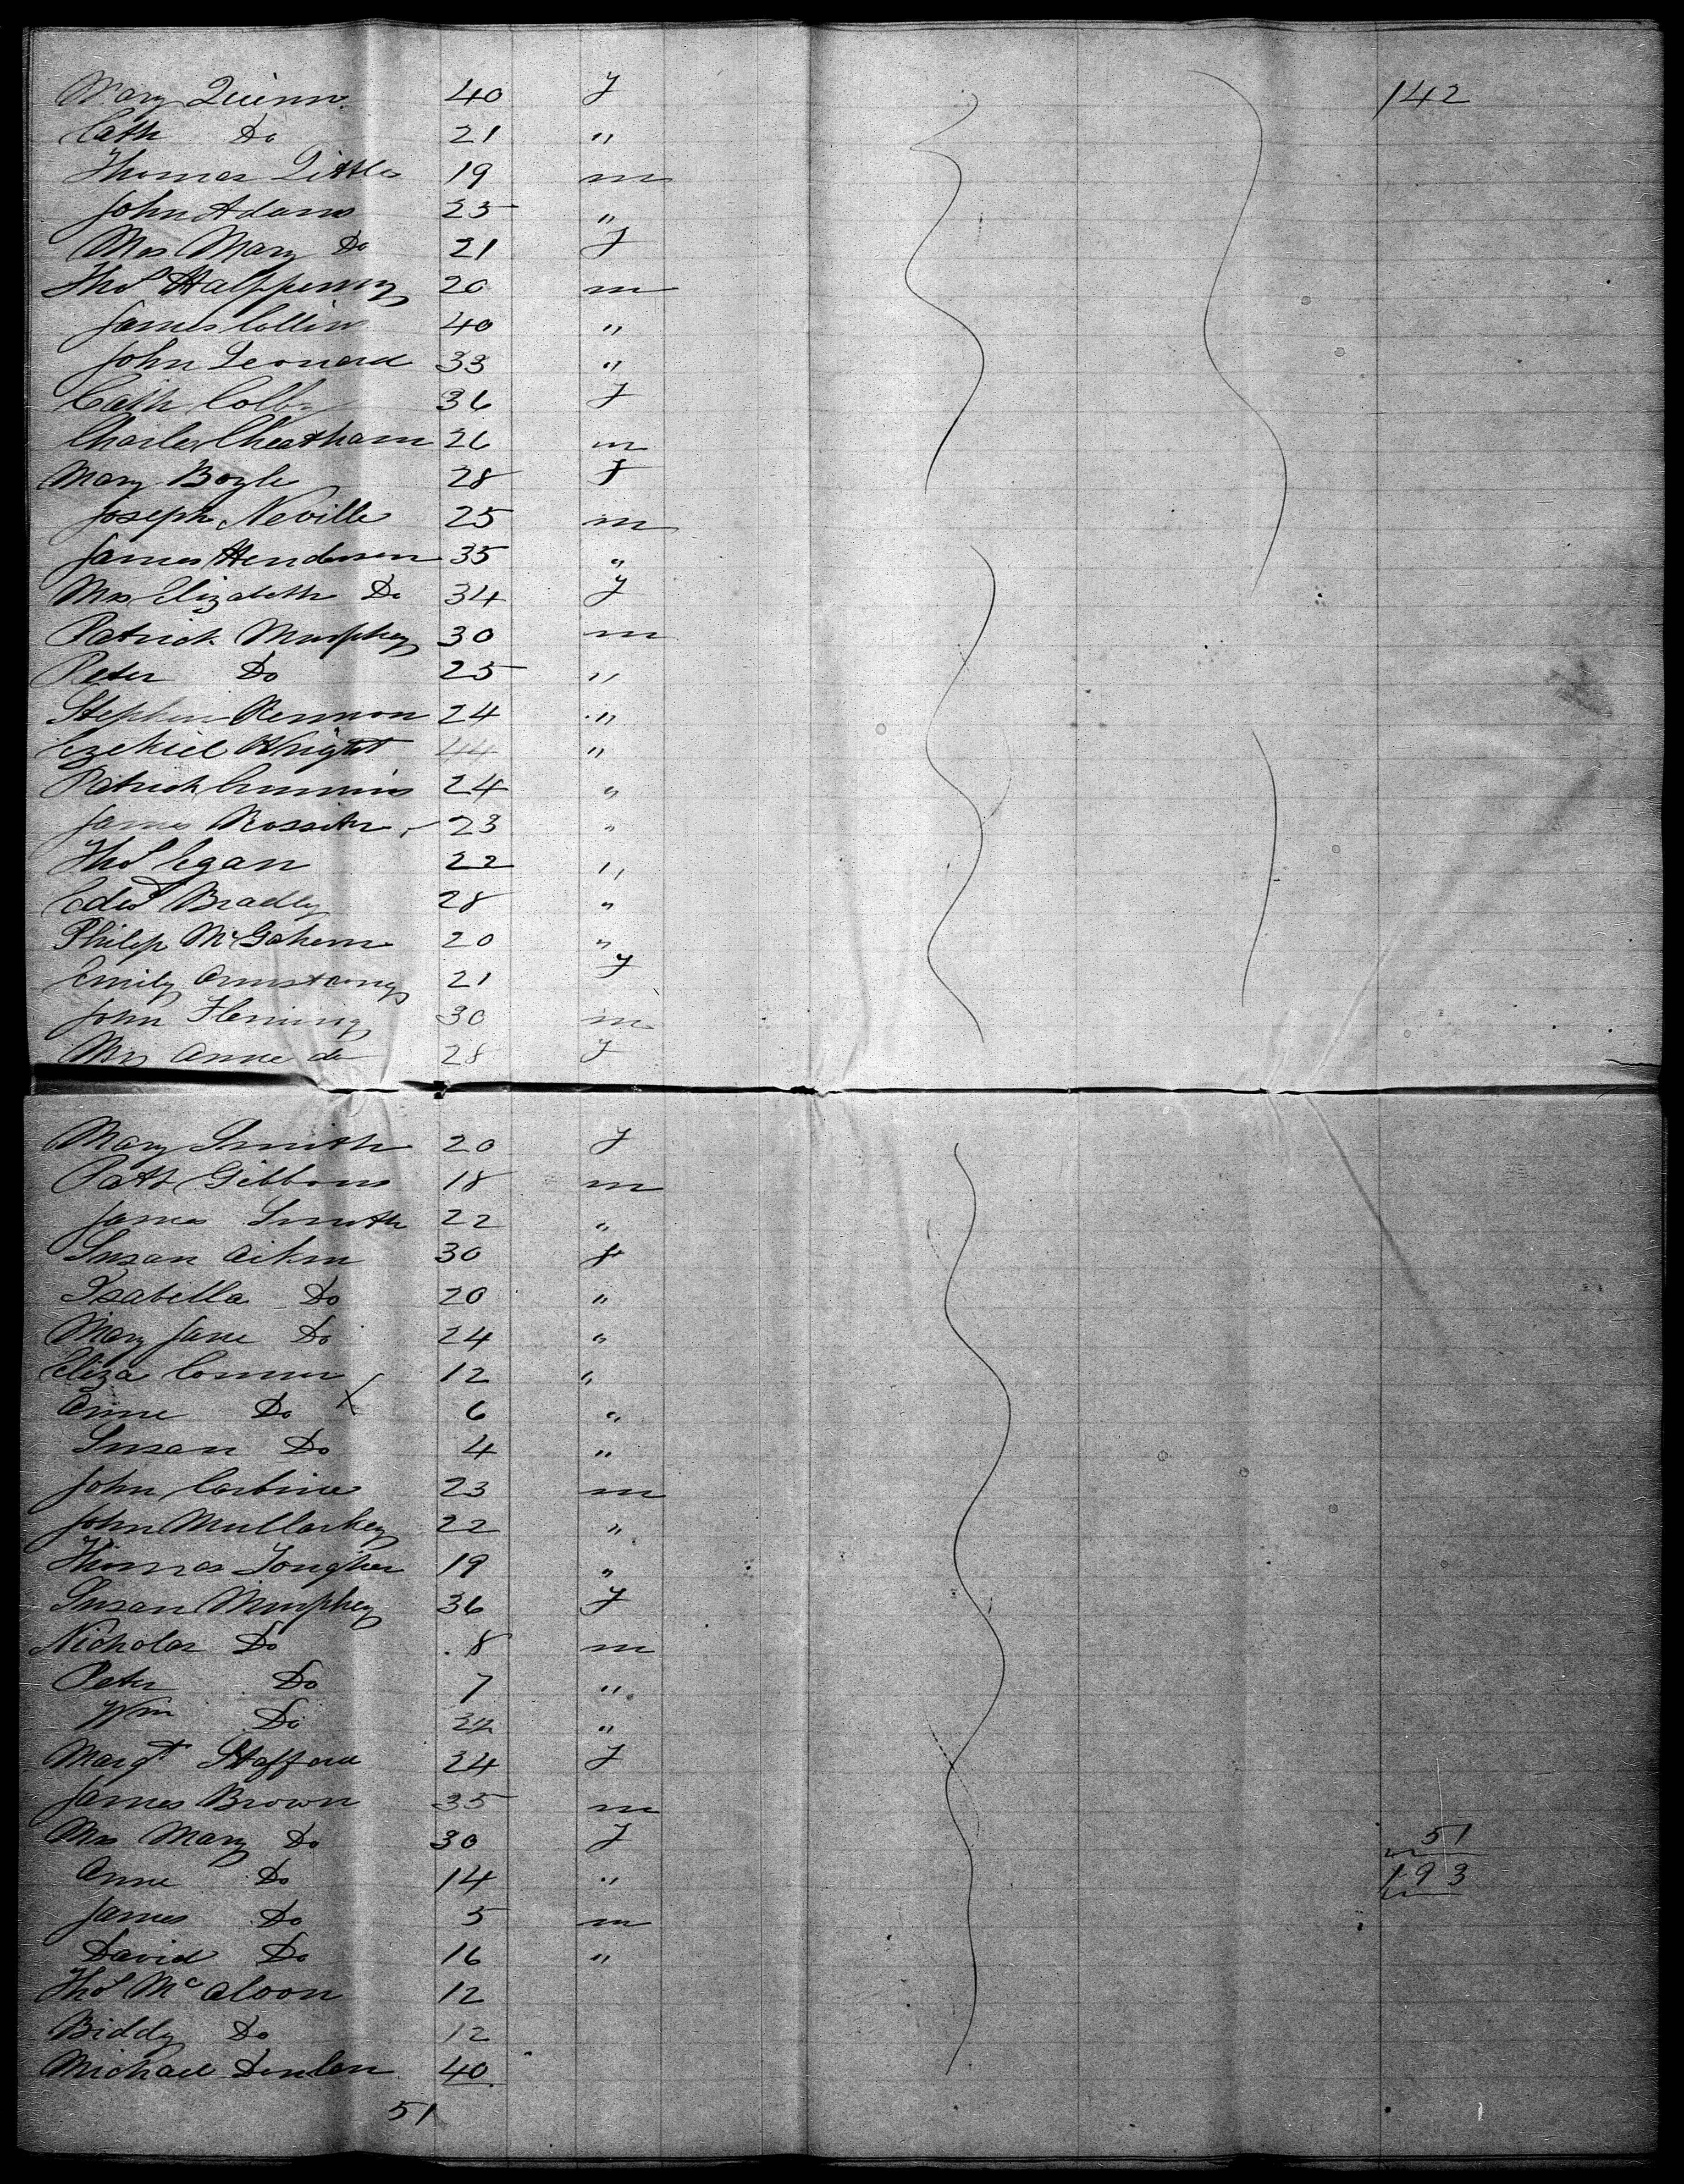 Mary Quinn 40 f 142
Cath Do 21 "
Thomas Little 19 m
John Adams 25 "
Mrs Mary Do 21 f
Thos Halfpenny 20 m
James Collins 40 "
John Leonard 33 "
Cath 36 f
Charles Cheatham 26 m
Mary Boyle 28 f
Joseph Neville 25 m
James Henderson 35 "
Mrs Elizabeth Do 34 f
Patrick Murphey 30 m
Peter Do 25 "
Stephen 24 "
Ezekiel Wright 44 "
Patrick Cummins 24 "
James Rossiter 23 "
Thos Egan 22 "
Edwd Bradley 28 "
Philip 20 "
Emily Armstrong 21 f
John Fleming 30 m
Mrs Anne do 28 f
Mary Smith 20 f
Patt Gibbons 18 m
James Smith 22 "
Susan Aiken 30 f
Isabella Do 20 "
Mary Jane Do 24 "
Eliza Connor 12 "
Anne Do X 6 "
Susan Do 4 "
John 23 m
John Mullarkey 22 "
Thomas 19 "
Susan Murphey 36 f
Nicholas Do 8 m
Peter Do 7 "
Wm Do "
Margt Stafford 24 f
James Brown 35 m
Mrs Mary Do 30 f 51
Anne Do 14 " 193
James Do 5 m
David Do 16 "
Thos McAloon 12
Biddy Do 12
Michael 40
51